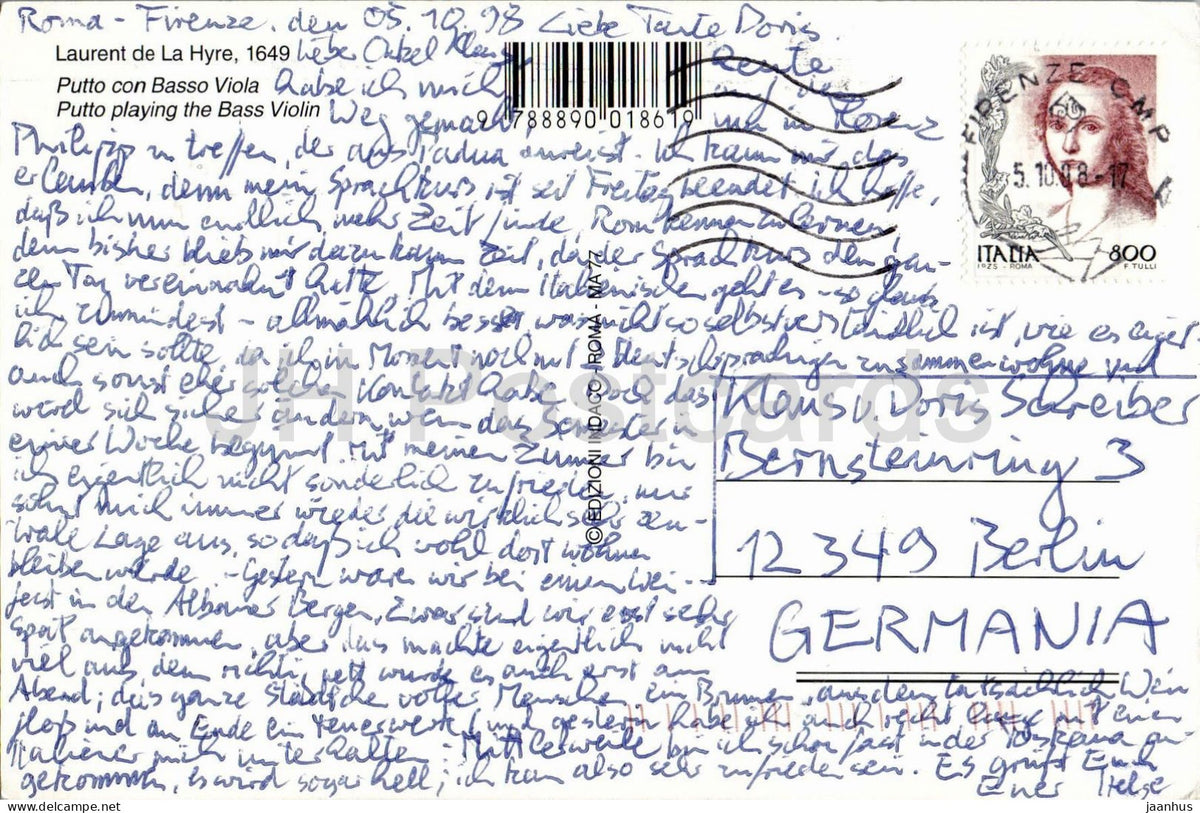 Roma - Firenze, den 05.10.98 Liebe Tante Doris,
Laurent de La Hyre, 1649 lieber Onkel Klaus, heute
Putto con Basso Viola habe ich mich auf den
Putto playing the Bass Violin Weg gemacht, um in Florenz
9 788890 018619
Philipp zu treffen, der aus Padua anreist. Ich kann mir das
erlauben, denn mein Sprachkurs ist seit Freitag beendet. Ich hoffe,
daß ich nun endlich mehr Zeit finde, Rom kennenzulernen,
denn bisher blieb mir dazu kaum Zeit, da der Sprachkurs den gan-
zen Tag vereinnahmt hatte. Mit dem Italienischen geht es - so glaube
ich zumindest - allmählich besser, was nicht so selbstverständlich ist, wie es eigent-
lich sein sollte, da ich im Moment noch mit Deutschsprachigen zusammenwohne und
auch sonst eher solchen Kontakt habe. Doch das
wird sich sicher ändern, wenn das Semester in
einer Woche beginnt. Mit meinem Zimmer bin
ich eigentlich nicht sonderlich zufrieden, nur
söhnt mich immer wieder die wirklich sehr zen-
trale Lage aus, so daß ich wohl dort wohnen
bleiben werde. - Gestern waren wir bei einem Wein-
fest in den Albaner Bergen. Zwar sind wir erst sehr
spät angekommen, aber das machte eigentlich nicht
viel aus, denn richtig nett wurde es auch erst am
Abend; das ganze Städtchen voller Menschen, ein Brunnen, aus dem tatsächlich Wein
floß und am Ende ein Feuerwerk (und gestern habe ich auch recht lange mit einem
Italiener mich unterhalten. - Mittlerweile bin ich schon fast in der Toskana an-
gekommen, es wird sogar hell; ich kann also sehr zufrieden sein. Es grüßt Euch
Euer Helge
© EDIZIONI INDACO - ROMA - MA 77
FIRENZE CMP
5.10.98-17
ITALIA 800
I.P.Z.S. - ROMA F. TULLI
Klaus u. Doris Schreiber
Bernsteinring 3
12349 Berlin
GERMANIA
JH Postcards
jaanhus